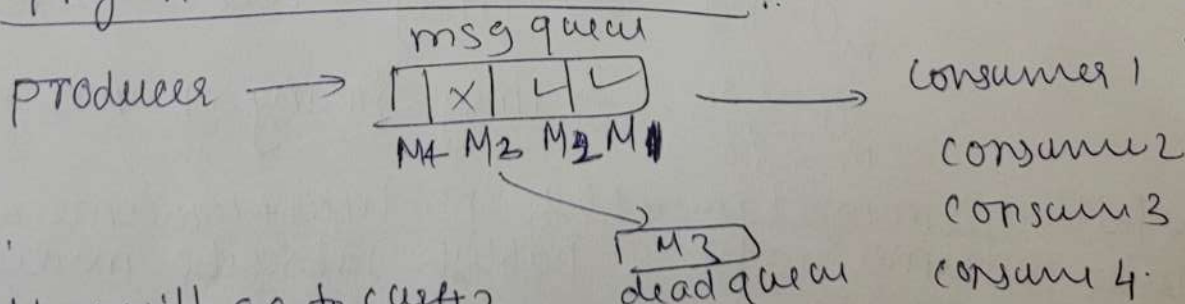 msg queue
producer → | | X | ✓ | ✓ | → consumer 1
M4 M3 M2 M1
consume 2
consum 3
M3
dead queue consume 4.